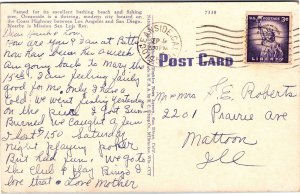 Famed for its excellent bathing beach and fishing
pier, Oceanside is a thriving, modern city located on
the Coast Highway between Los Angeles and San Diego.
Nearby is Mission San Luis Rey.
7338
OCEANSIDE, CAL
POST CARD
3¢
LIBERTY
Dear
How are you? I am at
now Ran down for a week
Am going back to Mary the
15th. I am feeling fairly
good for me, only I have a
cold. We went fishing yesterday
on the pier. I got Sun
Burned we caught a few
I lost $1.50 Saturday
night playing poker
But had fun. We go to
the Club & play Bingo
love that. Love Mother
Mr & Mrs S. E. Roberts
2201 Prairie Ave
Mattoon
Ill